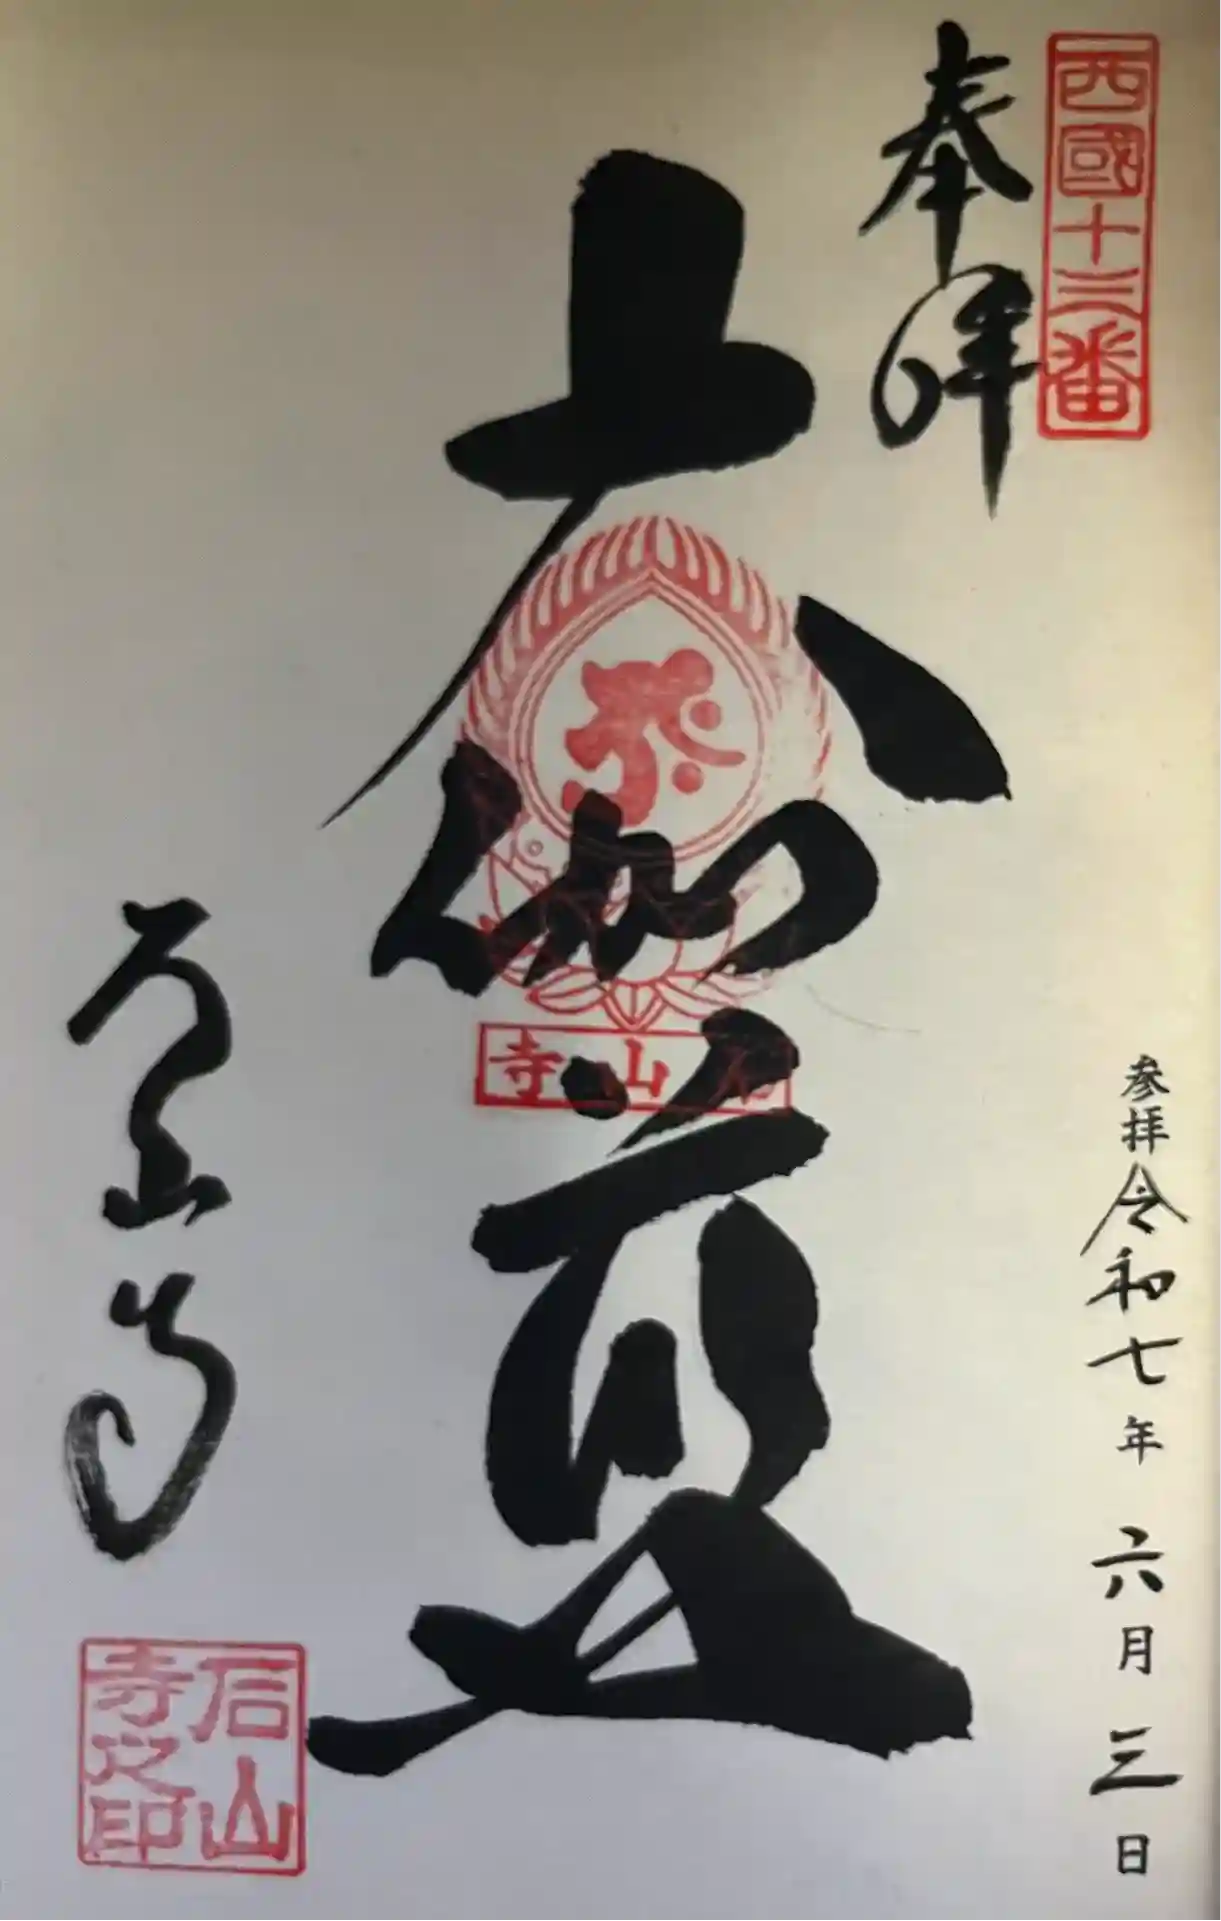 西國十三番
奉拝
参拝令和七年六月三日
大伽藍
石山寺
石山寺
石山寺之印